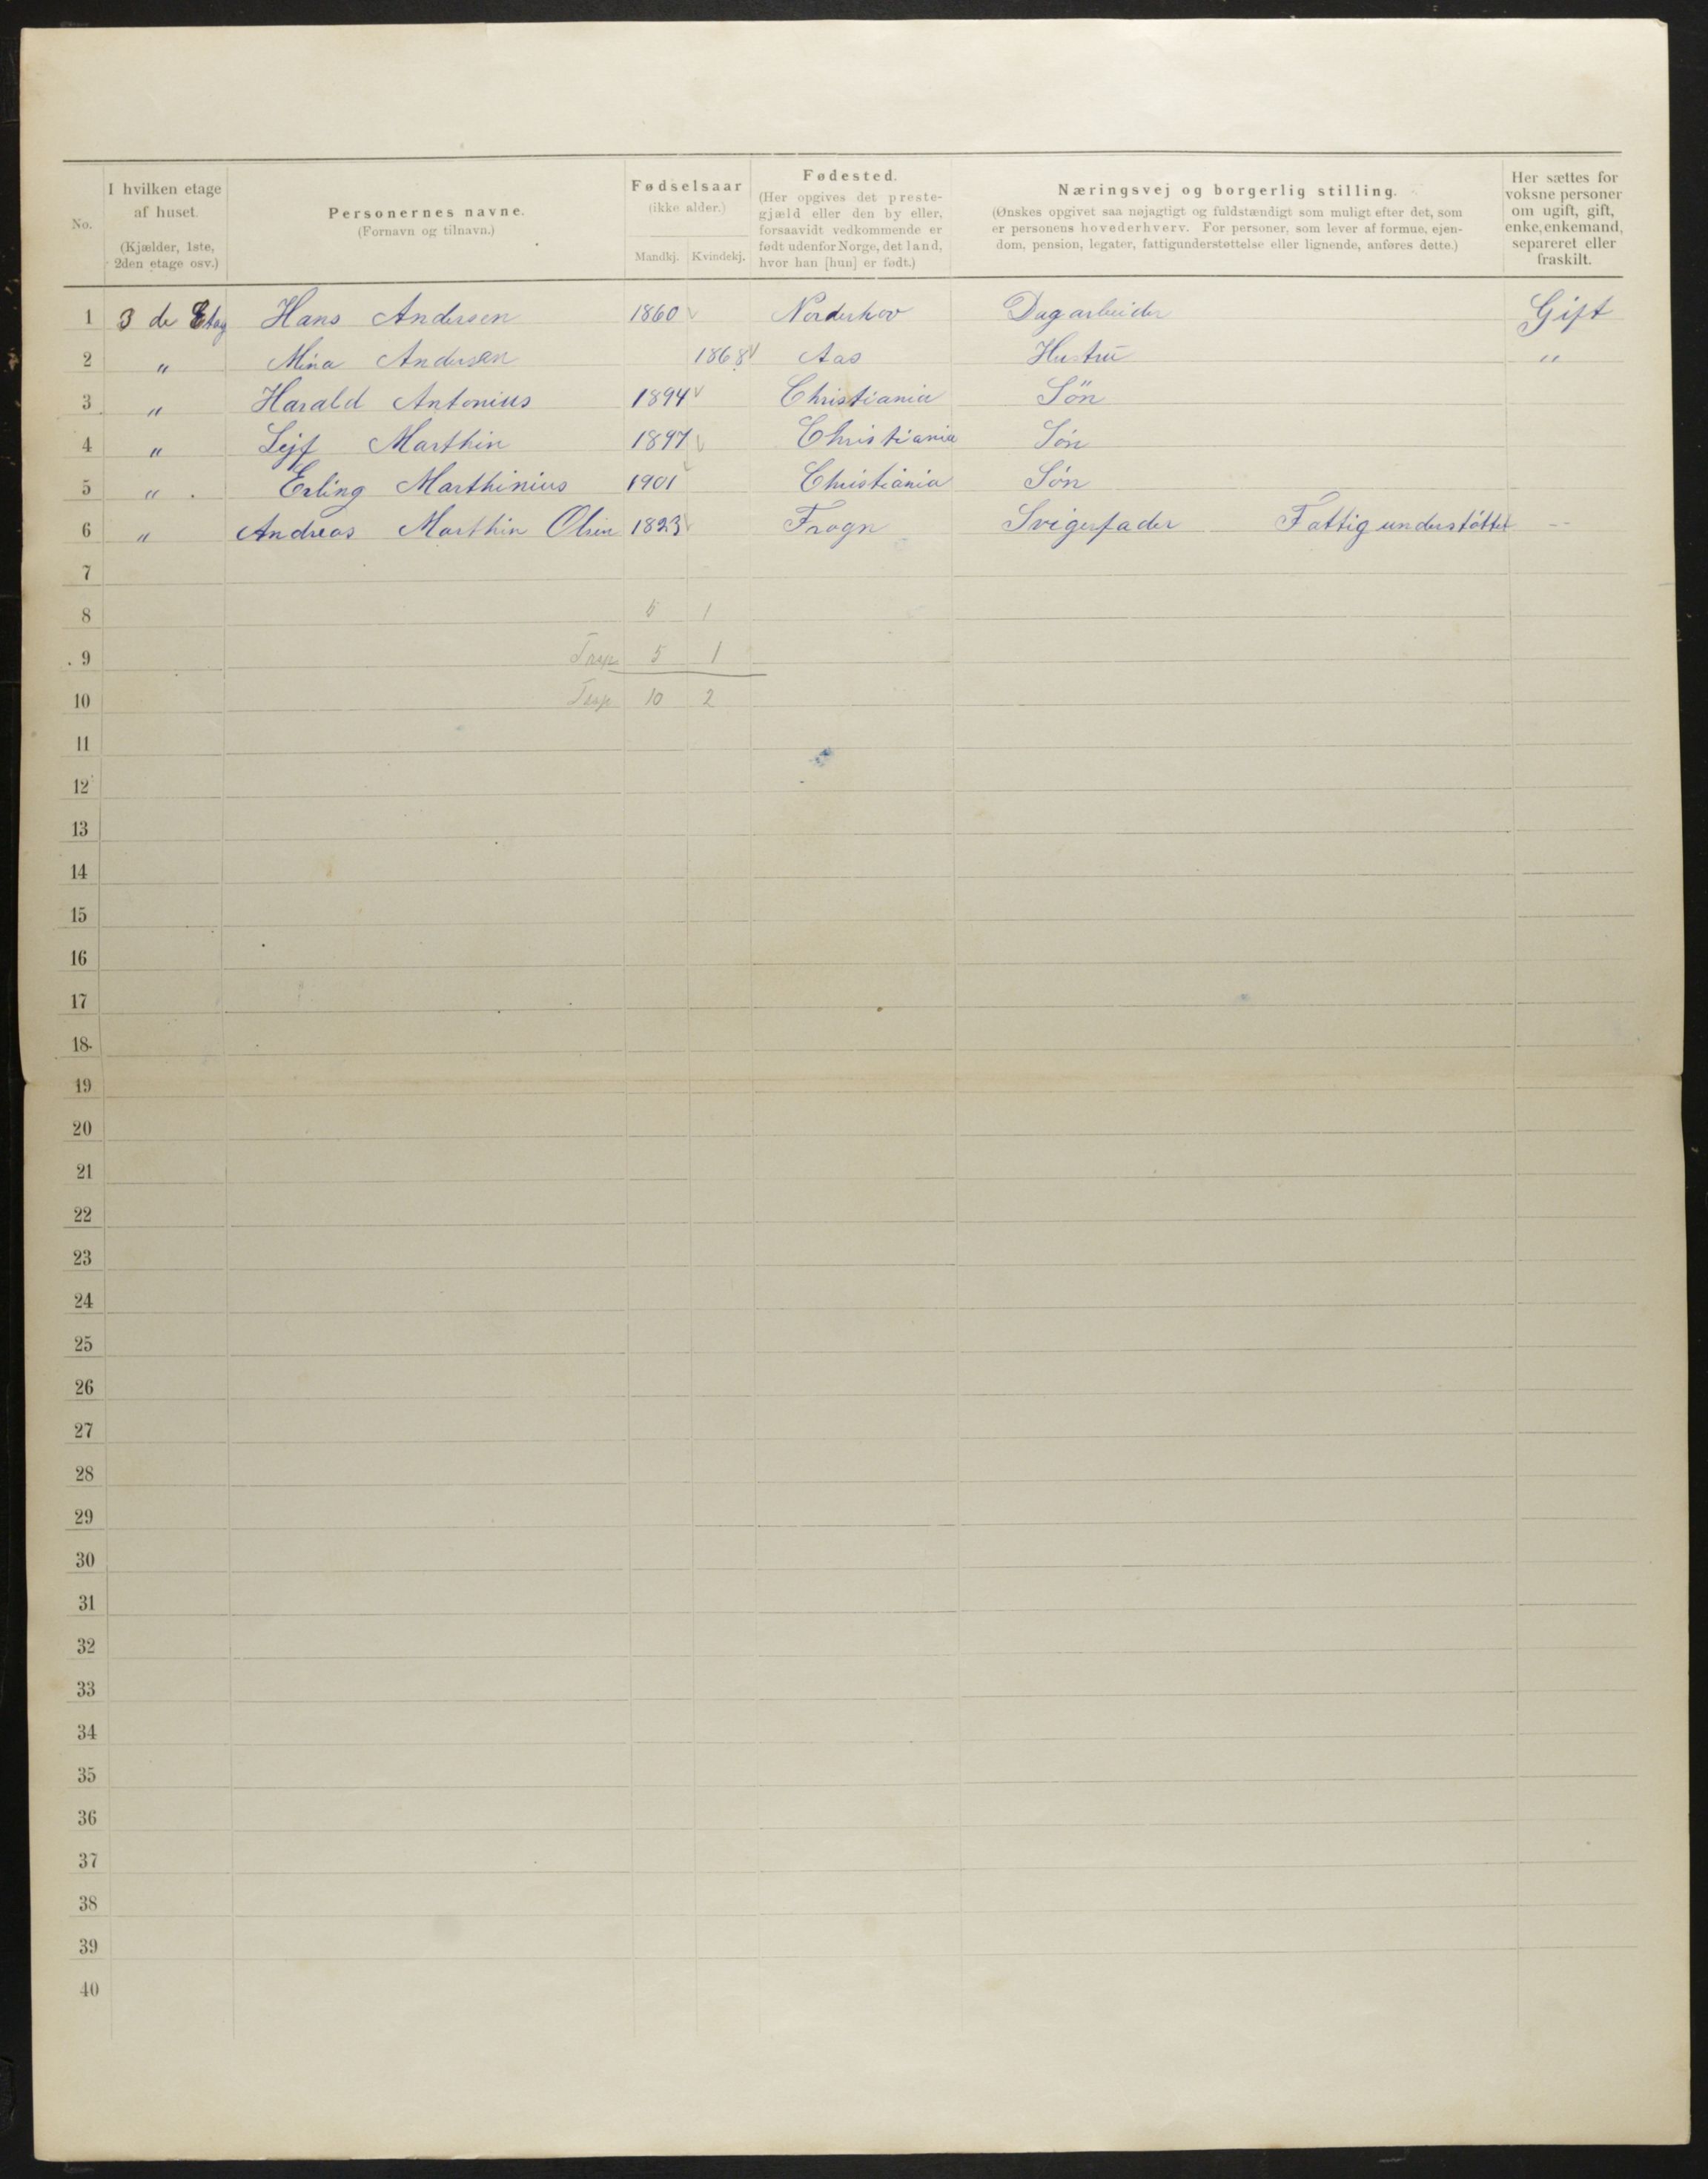 No.
I hvilken etage af huset. (Kjælder, 1ste, 2den etage osv.)
Personernes navne. (Fornavn og tilnavn.)
Fødselsaar (ikke alder.) Mandkj. Kvindekj.
Fødested. (Her opgives det prestegjæld eller den by eller, forsaavidt vedkommende er født udenfor Norge, det land, hvor han [hun] er født.)
Næringsvej og borgerlig stilling. (Ønskes opgivet saa nøjagtigt og fuldstændigt som muligt efter det, som er personens hovederhverv. For personer, som lever af formue, ejendom, pension, legater, fattigunderstøttelse eller lignende, anføres dette.)
Her sættes for voksne personer om ugift, gift, enke, enkemand, separeret eller fraskilt.
1 3 de Etag Hans Andersen 1860 Norderhov Dagarbeider Gift
2 " Mina Andersen 1868 Aas Hustru "
3 " Harald Antonius 1894 Christiania Søn
4 " Lejf Marthin 1897 Christiania Søn
5 " Erling Marthinius 1901 Christiania Søn
6 " Andreas Marthin Olsen 1823 Frogn Svigerfader Fattigunderstøttet --
7
8 5 1
9 5 1
10 10 2
11
12
13
14
15
16
17
18
19
20
21
22
23
24
25
26
27
28
29
30
31
32
33
34
35
36
37
38
39
40